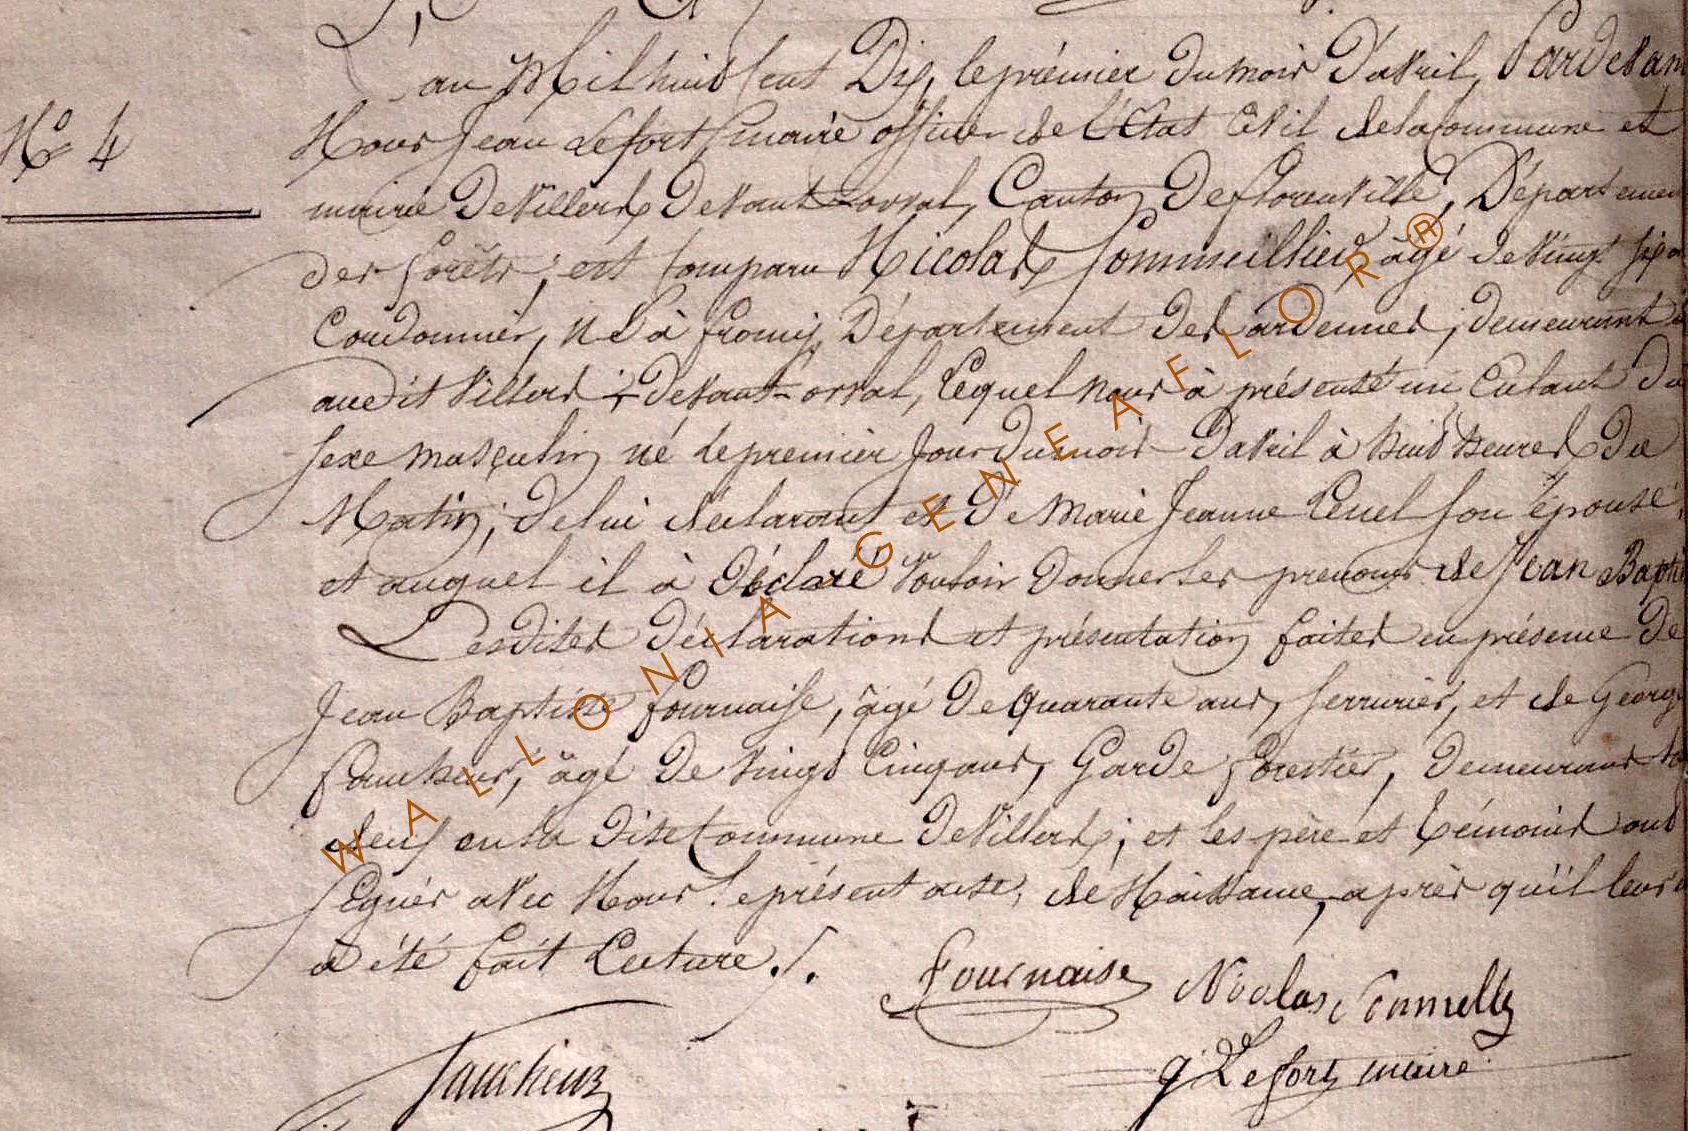 L'an Mil huid Cent Dix, le prémier du mois D'avril, Pardevant
N.º 4
Nous Jean Lefort maire officier de l'Etat Civil de la Commune et
mairie De Villers Devant orval, Canton De florenville, Département
des forêts; est Comparu Nicolas Sommeillier âgé de Vingt six
Cordonnier, né à fromy Département des ardennes; demeurant
audit Villers Devant-orval, lequel nous à présenté un Enfant Du
Sexe masculin né le premier Jour du mois D'avril à huid heures Du
Matin; de lui déclarant et De Marie Jeanne Penel son épouse;
et auquel il à Déclaré Vouloir Donner les prenoms de Jean Bapti
Lesdites Déclarations et présentation faites en présence De
Jean Baptiste fournaise, âgé De quarante ans, serrurier, et de George
faucheux, âgé De Vingt Cinq ans, Garde forestier, demeurant
deux en la Dite Commune De Villers; et les père et témoins ont
Signés avec Nous le présent acte, de Naissance, après qu'il leurs
à été fait Lecture./.
fournaise
Nicolas Sommelly
faucheux
g Lefort maire
WALLONIA GENEAFLOR®